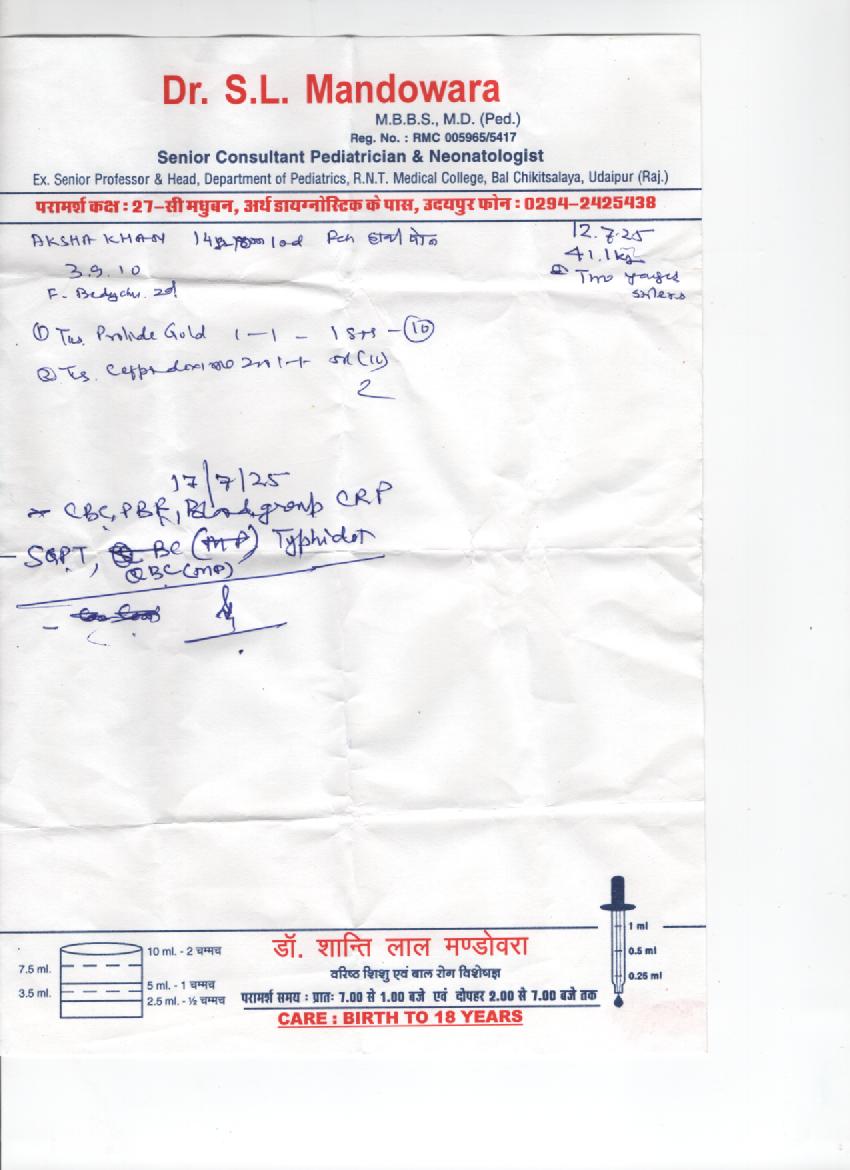 Dr. S.L. Mandowara
M.B.B.S., M.D. (Ped.)
Reg. No. : RMC 005965/5417
Senior Consultant Pediatrician & Neonatologist
Ex. Senior Professor & Head, Department of Pediatrics, R.N.T. Medical College, Bal Chikitsalaya, Udaipur (Raj.)
परामर्श कक्ष : 27-सी मधुबन, अर्थ डायग्नोस्टिक के पास, उदयपुर फोन : 0294-2425438
AKSHA KHAN 10d
12.7.25
41.1kg
Two
3.9.10
F.
① Prolide Gold 1-1 - - ⑩
②
2
17/7/25
CBC, PBF, Blood group CRP
- SGPT, BC (MP) Typhidot
QBC (MP)
1 ml
0.5 ml
0.25 ml
10 ml. - 2 चम्मच
7.5 ml.
5 ml. - 1 चम्मच
3.5 ml.
2.5 ml. - ½ चम्मच
डॉ. शान्ति लाल मण्डोवरा
वरिष्ठ शिशु एवं बाल रोग विशेषज्ञ
परामर्श समय : प्रातः 7.00 से 1.00 बजे एवं दोपहर 2.00 से 7.00 बजे तक
CARE : BIRTH TO 18 YEARS